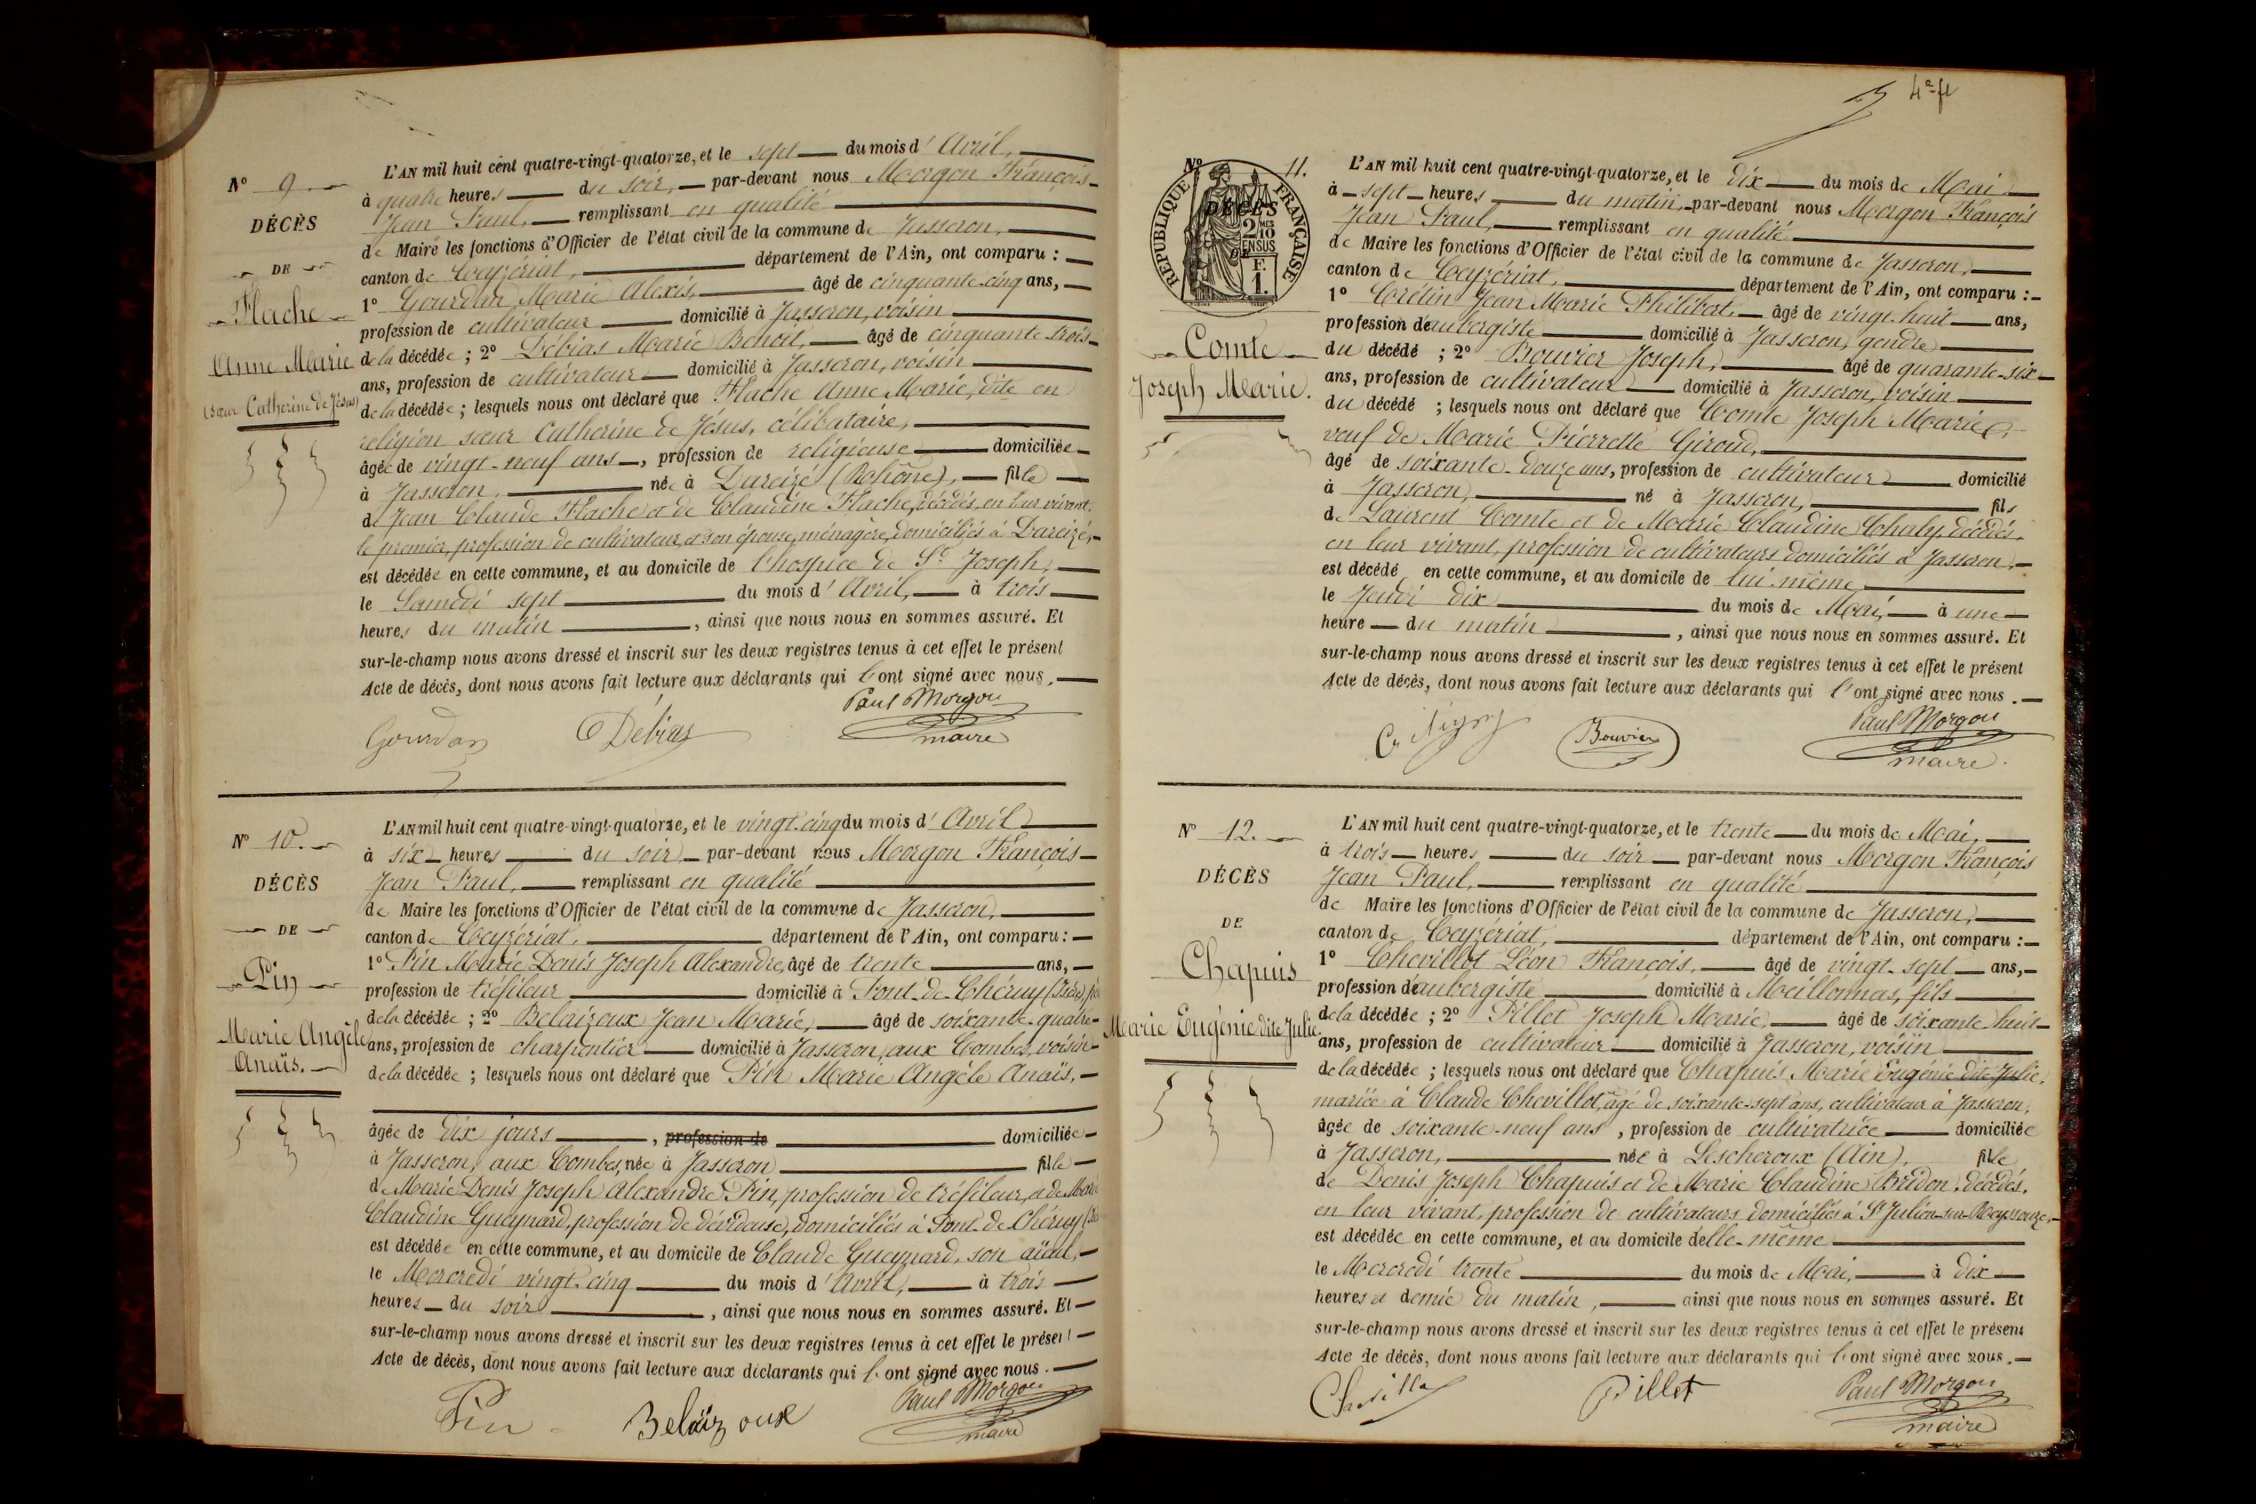 N° 9.
DÉCÈS
DE
Flache
Anne Marie
(sœur Catherine de Jésus)
L'AN mil huit cent quatre-vingt-quatorze, et le sept du mois d'Avril,
à quatre heures du soir, par-devant nous Morgon François
Jean Paul, remplissant en qualité
de Maire les fonctions d'Officier de l'état civil de la commune de Jasseron,
canton de Ceyzériat, département de l'Ain, ont comparu :
1° Gourdan Marie Alexis, âgé de cinquante-cinq ans,
profession de cultivateur domicilié à Jasseron, voisin
de la décédée ; 2° Débias Marie Benoit, âgé de cinquante trois
ans, profession de cultivateur domicilié à Jasseron, voisin
de la décédée ; lesquels nous ont déclaré que Flache Anne Marie, dite en
religion sœur Catherine de Jésus, célibataire,
âgée de vingt-neuf ans, profession de religieuse domiciliée
à Jasseron, née à Dareizé (Rohône), fille
de Jean Claude Flache et de Claudine Flache, décédés, en leur vivant,
le premier, profession de cultivateur, et son épouse, ménagère, domiciliés à Dareizé,
est décédée en cette commune, et au domicile de l'hospice de St Joseph,
le Samedi sept du mois d'Avril, à trois
heures du matin, ainsi que nous nous en sommes assuré. Et
sur-le-champ nous avons dressé et inscrit sur les deux registres tenus à cet effet le présent
Acte de décès, dont nous avons fait lecture aux déclarants qui l'ont signé avec nous.
Gourdan Débias Paul Morgon
maire
N° 10.
DÉCÈS
DE
Pin
Marie Angèle
Anaïs.
L'AN mil huit cent quatre-vingt-quatorze, et le vingt-cinq du mois d'Avril
à six heures du soir par-devant nous Morgon François
Jean Paul, remplissant en qualité
de Maire les fonctions d'Officier de l'état civil de la commune de Jasseron,
canton de Ceyzériat, département de l'Ain, ont comparu :
1° Pin Marie Denis Joseph Alexandre, âgé de trente ans,
profession de tréfileur domicilié à Pont-de-Chéruy (Isère)
de la décédée ; 2° Belaizoux Jean Marie, âgé de soixante-quatre
ans, profession de charpentier domicilié à Jasseron, aux Combes, voisin
de la décédée ; lesquels nous ont déclaré que Pin Marie Angèle Anaïs,
âgée de dix jours, profession de domiciliée
à Jasseron, aux Combes, née à Jasseron fille
de Marie Denis Joseph Alexandre Pin, profession de tréfileur, et de Marie
Claudine Gueynard, profession de dévideuse, domiciliés à Pont-de-Chéruy
est décédée en cette commune, et au domicile de Claude Gueynard, son aïeul,
le Mercredi vingt-cinq du mois d'Avril, à trois
heures du soir, ainsi que nous nous en sommes assuré. Et
sur-le-champ nous avons dressé et inscrit sur les deux registres tenus à cet effet le présent
Acte de décès, dont nous avons fait lecture aux déclarants qui l'ont signé avec nous.
Pin Belaizoux Paul Morgon
maire
4e ft
N° 11.
RÉPUBLIQUE FRANÇAISE
DÉCÈS
2 MES
10
EN SUS
DE
F.
1.
Comte
Joseph Marie.
L'AN mil huit cent quatre-vingt-quatorze, et le dix du mois de Mai
à sept heures du matin, par-devant nous Morgon François
Jean Paul, remplissant en qualité
de Maire les fonctions d'Officier de l'état civil de la commune de Jasseron,
canton de Ceyzériat, département de l'Ain, ont comparu :
1° Crétin Jean Marie Philibert, âgé de vingt-huit ans,
profession d'aubergiste domicilié à Jasseron, gendre
du décédé ; 2° Bouvier Joseph, âgé de quarante-six
ans, profession de cultivateur domicilié à Jasseron, voisin
du décédé ; lesquels nous ont déclaré que Comte Joseph Marie,
veuf de Marie Pierrette Giroud,
âgé de soixante-douze ans, profession de cultivateur domicilié
à Jasseron, né à Jasseron, fils
de Laurent Comte et de Marie Claudine Chaby, décédés,
en leur vivant, profession de cultivateurs domiciliés à Jasseron,
est décédé en cette commune, et au domicile de lui-même
le Jeudi dix du mois de Mai, à une
heure du matin, ainsi que nous nous en sommes assuré. Et
sur-le-champ nous avons dressé et inscrit sur les deux registres tenus à cet effet le présent
Acte de décès, dont nous avons fait lecture aux déclarants qui l'ont signé avec nous.
Bouvier Paul Morgon
maire.
N° 12.
DÉCÈS
DE
Chapuis
Marie Eugénie dite Julie.
L'AN mil huit cent quatre-vingt-quatorze, et le trente du mois de Mai,
à trois heures du soir par-devant nous Morgon François
Jean Paul, remplissant en qualité
de Maire les fonctions d'Officier de l'état civil de la commune de Jasseron,
canton de Ceyzériat, département de l'Ain, ont comparu :
1° Chevillot Léon François, âgé de vingt-sept ans,
profession d'aubergiste domicilié à Meillonnas, fils
de la décédée ; 2° Pillet Joseph Marie, âgé de soixante-huit
ans, profession de cultivateur domicilié à Jasseron, voisin
de la décédée ; lesquels nous ont déclaré que Chapuis Marie Eugénie dite Julie,
mariée à Claude Chevillot, âgé de soixante-sept ans, cultivateur à Jasseron,
âgée de soixante-neuf ans, profession de cultivatrice domiciliée
à Jasseron, née à Lescheroux (Ain), fille
de Denis Joseph Chapuis et de Marie Claudine Bridon, décédés,
en leur vivant, profession de cultivateurs domiciliés à St Julien-sur-Reyssouze,
est décédée en cette commune, et au domicile d'elle-même
le Mercredi trente du mois de Mai, à dix
heures et demie du matin, ainsi que nous nous en sommes assuré. Et
sur-le-champ nous avons dressé et inscrit sur les deux registres tenus à cet effet le présent
Acte de décès, dont nous avons fait lecture aux déclarants qui l'ont signé avec nous.
Pillet Paul Morgon
maire